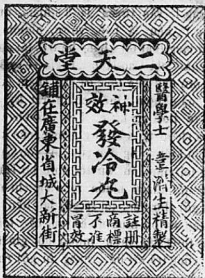 二天堂
醫學士 韋濟生精製
神效
發冷丸
註冊商標不准冒效
舖在廣東省城大新街